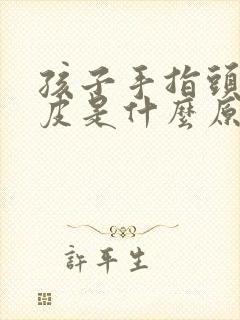 孩子手指頭
皮是什麼原
許平生